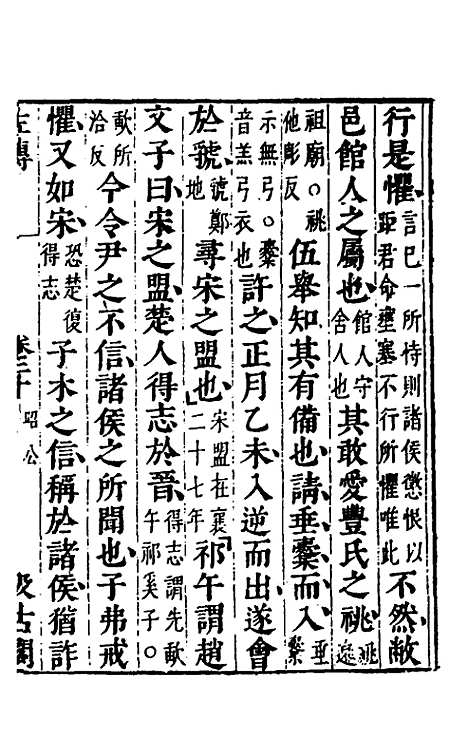 行是懼言已一所恃則諸侯懲恨以距君命壅塞不行所懼唯此不然敝
邑館人之屬也館人守舍人也其敢愛豐氏之祧祧遠
祖廟○祧他彫反伍舉知其有備也請垂櫜而入垂櫜
示無弓○櫜音羔弓衣也許之正月乙未入逆而出遂會
於虢虢鄭地尋宋之盟也宋盟在襄二十七年祁午謂趙
文子曰宋之盟楚人得志於晉得志謂先歃午祁奚子○
歃所洽反今令尹之不信諸侯之所聞也子弗戒
懼又如宋恐楚復得志子木之信稱於諸侯猶詐
左傳 卷二十 昭公 汲古閣